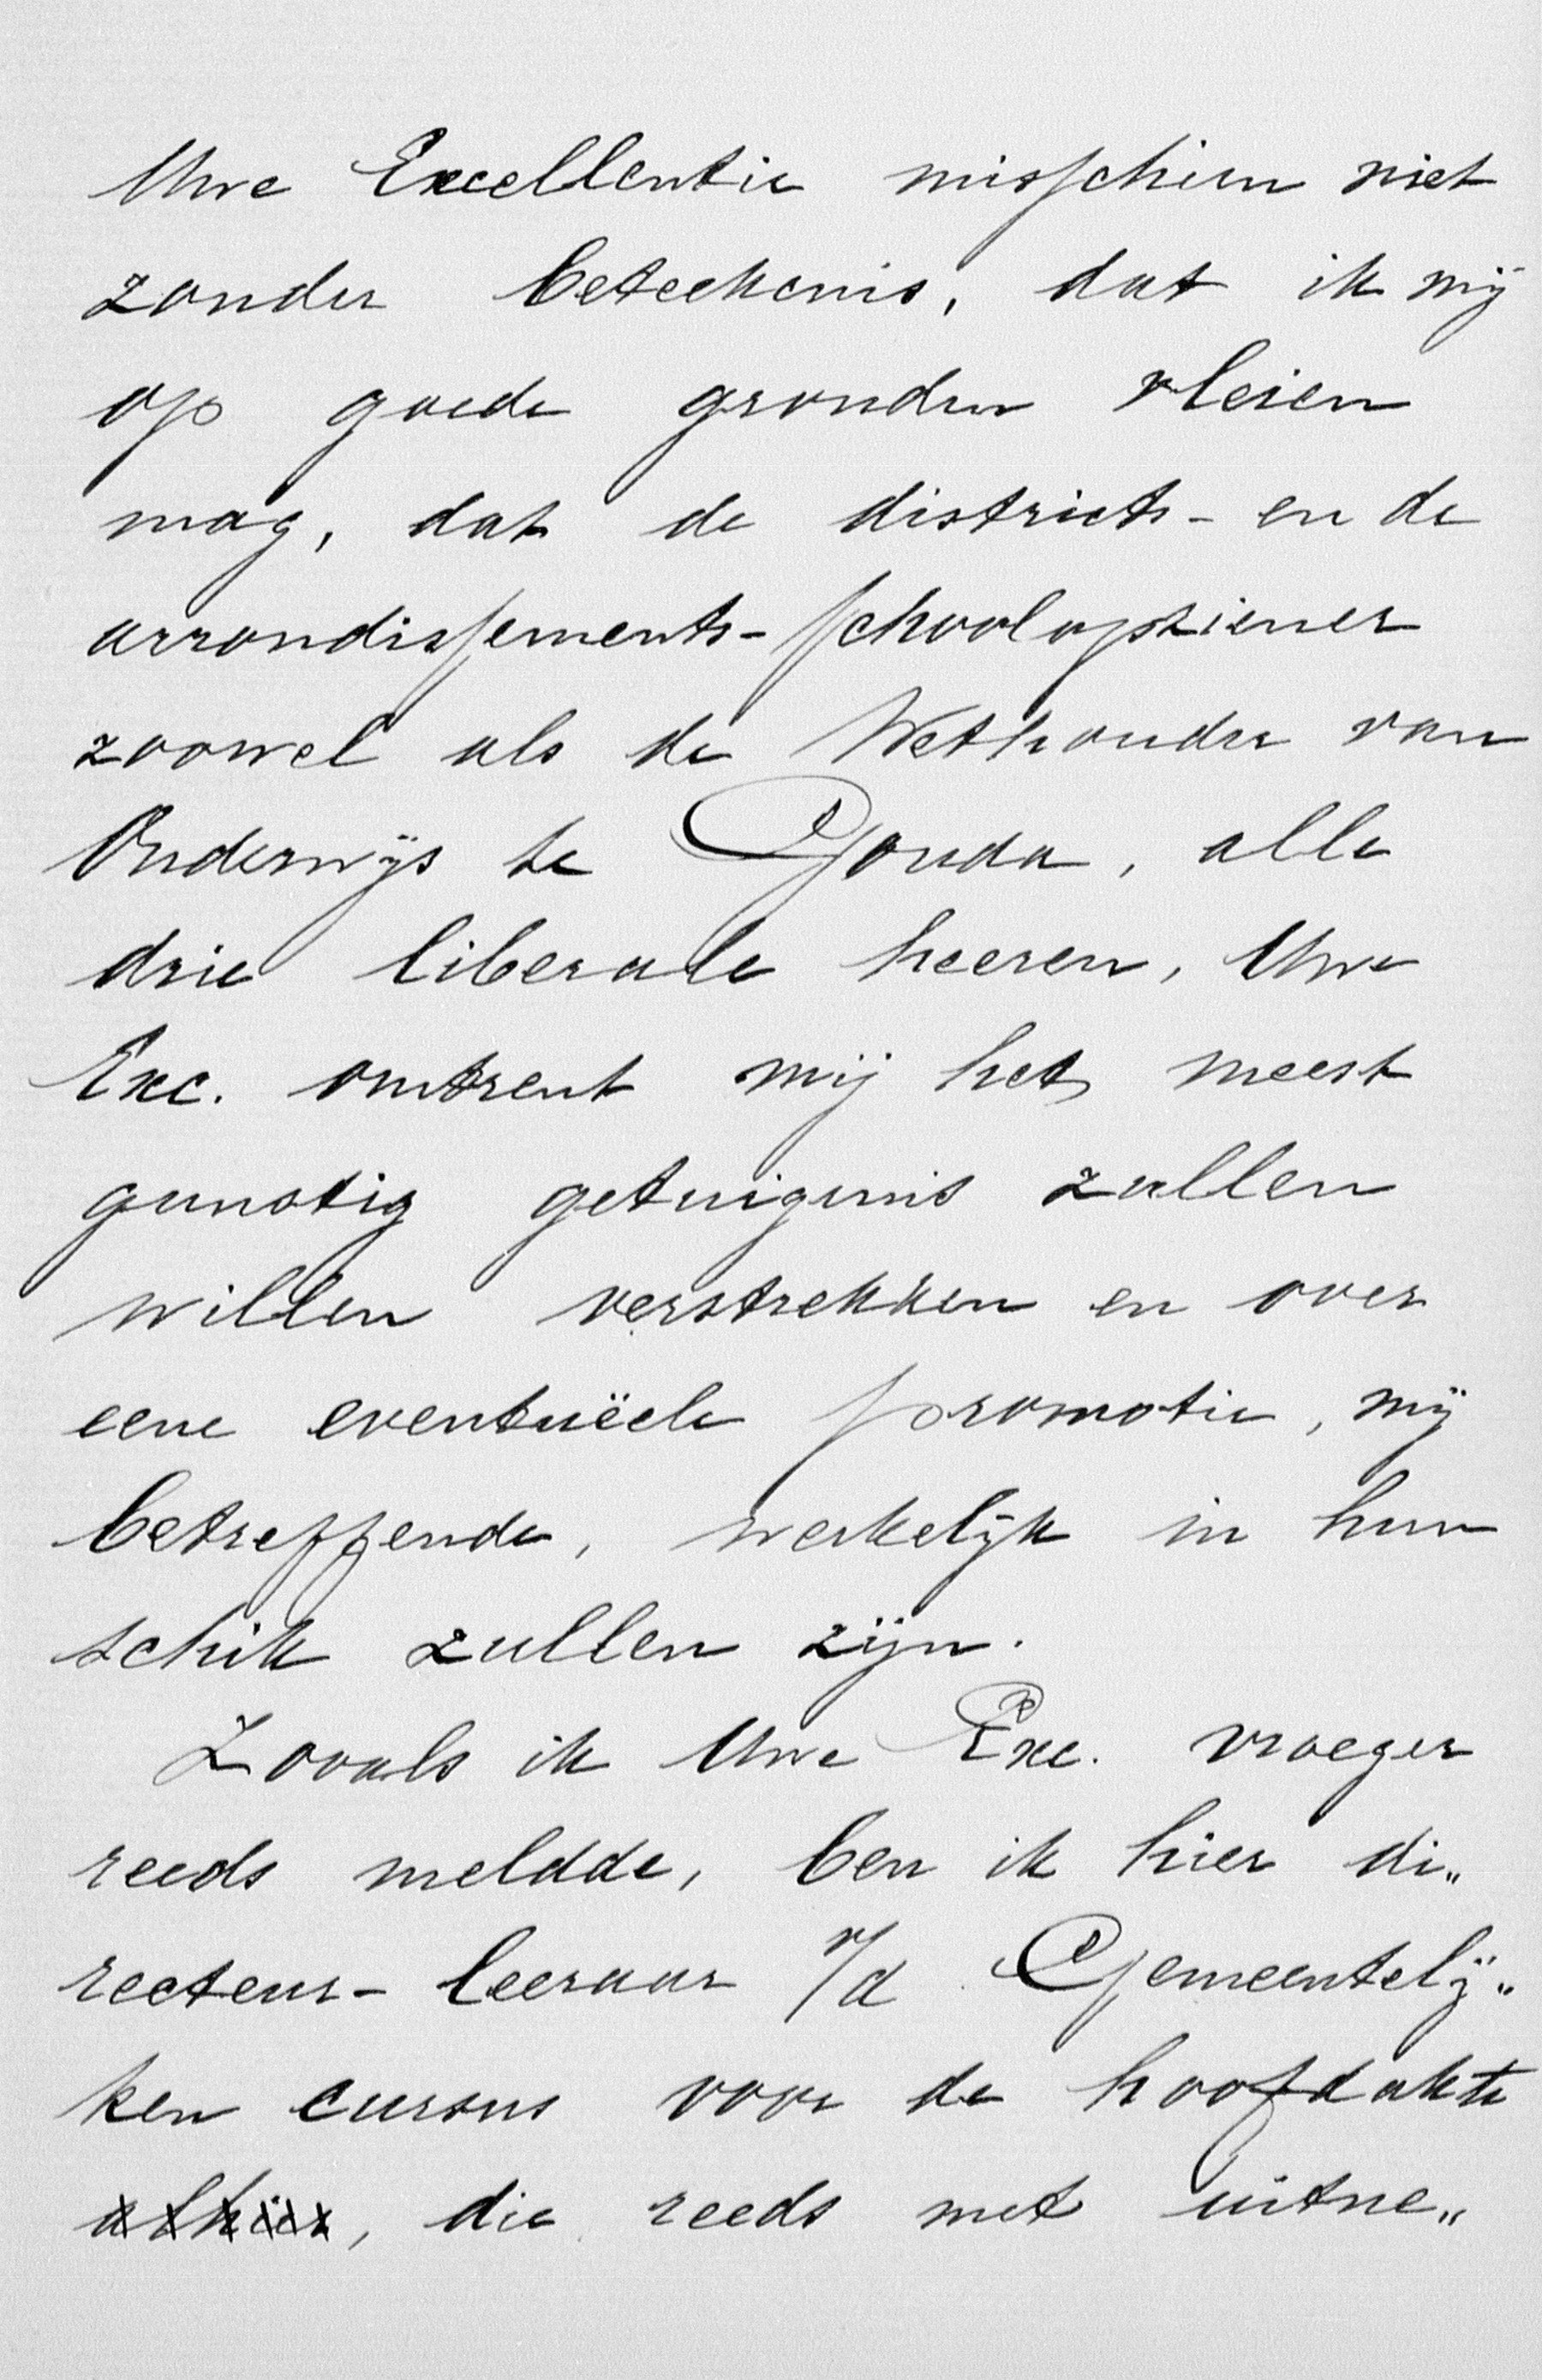 Uwe Excellentie misschien niet
zonder beteekenis, dat ik mij
op goede gronden vleien
mag, dat de districts- en de
arrondissements-schoolopziener
zoowel als de Wethouder van
Onderwijs te Gouda, alle
drie liberale heeren, Uwe
Exc. omtrent mij het meest
gunstig getuigenis zullen
willen verstrekken en over
eene eventuëele promotie, mij
betreffende, werkelijk in hun
schik zullen zijn.
Zooals ik Uwe Exc. vroeger
reeds meldde, ben ik hier di„
recteur-leeraar v/d Gemeentelij„
ken cursus voor de hoofdakte
alhier, die reeds met uitne„